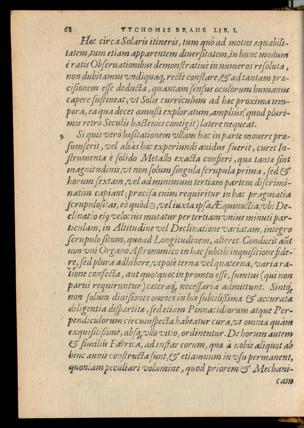 68 TYCHONIS BRAHE LIB. I.
Hæc circa Solaris itineris, tum quò ad motus æquabili-
tatem, tum etiam apparentem diuersitatem, in hunc modum
è ratis Obseruationibus demonstratiuè in numeros resoluta,
non dubitamus vndiquaq; rectè constare, & ad tantam præ-
cisionem esse deducta, quantam sensus oculorum humanus
capere sustineat, vt Solis curriculum ad hæc proxima tem-
pora, ea qua decet amussi exploratum, amplius (quod pluri-
mis retro Seculis hactenus contigit) latere nequeat.
Si quis verò hæsitationem vllam hac in parte mouere præ-
sumserit, vel alias hæc experiundi auidus fuerit, curet In-
strumenta è solido Metallo exacta confieri, quæ tanta sint
magnitudine, vt non solum singula scrupula prima, sed &
horum sextam, vel ad minimum tertiam partem discerni-
natim capiant; præcisa enim requiritur in hac pragmatia
scrupulositas, eò quod ☉, vel iuxta ipsa Æquinoctia, vbi De-
clinatio eiq velocius mutatur per tertiam vnius minuti par-
ticulam, in Altitudine vel Declinatione variatam, integro
scrupulo situm, quoad Longitudinem, alteret. Conducit aūt
non vni Organo Astronomico in hac subtili inquisitione fide-
re, sed plura adhibere, vtpote terna vel quaterna, varia ra-
tione confecta, aut quotquot in promtu esse, sumtus (qui non
parui requiruntur) cæteraq; necessaria admittunt. Sintq;
non solùm diuisiones omnes in his subtilissima & accurata
diligentia dispartitæ, sed etiam Pinnacidiorum atque Per-
pendiculorum circumspecta habeatur cura, vt omnia quàm
exquisitissimè, absq; vllo vitio, ordinentur. De horum autem
& similiū Fabrica, ad instar eorum, quæ à nobis aliquot ab
hinc annis constructa sunt, & etiamnum in vsu permanent,
quoniam peculiari volumine, quod priorem & Mechani-
cam